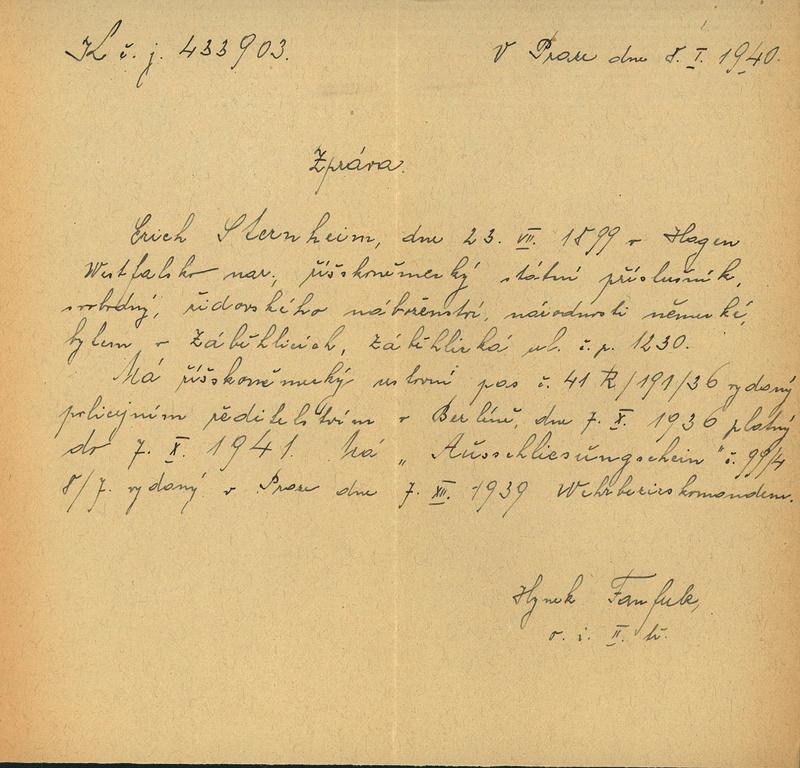 K č. j. 433903.
V Praze dne 8. I. 1940.
Zpráva.
Erich Sternheim, dne 23. VII. 1899 v Hagen
Westfalsko nar., říšskoněmecký státní příslušník,
svobodný, židovského náboženství, národnosti německé,
bytem v Záběhlicích, Záběhlická ul. č. p. 1230.
Má říšskoněmecký cestovní pas č. 41 R/191/36 vydaný
policejním ředitelstvím v Berlíně, dne 7. X. 1936 platný
do 7. X. 1941. Má „Ausschliesungschein" č. 99/4
8/7. vydaný v Praze dne 7. XII. 1939 Wehrbezirskomandem.
Hynek
o. i. II. tř.